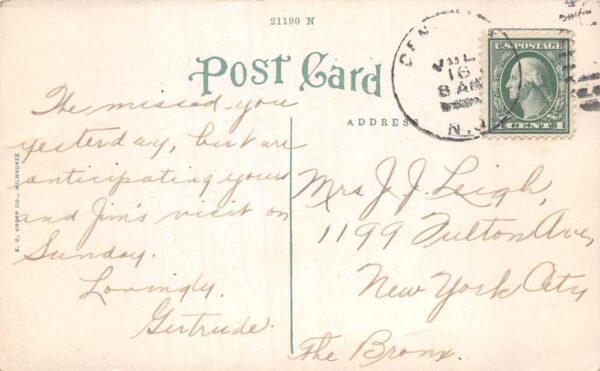 21190 N
Post Card
ADDRESS
JUL
16
8 AM
N.J.
U.S. POSTAGE
1 CENT 1
E. C. KROPP CO., MILWAUKEE
The missed you
yesterday, but are
anticipating yours
and Jim's visit on
Sunday.
Lovingly.
Gertrude.
Mrs J. J. Leigh,
1199 Fulton Ave,
New York City
The Bronx.